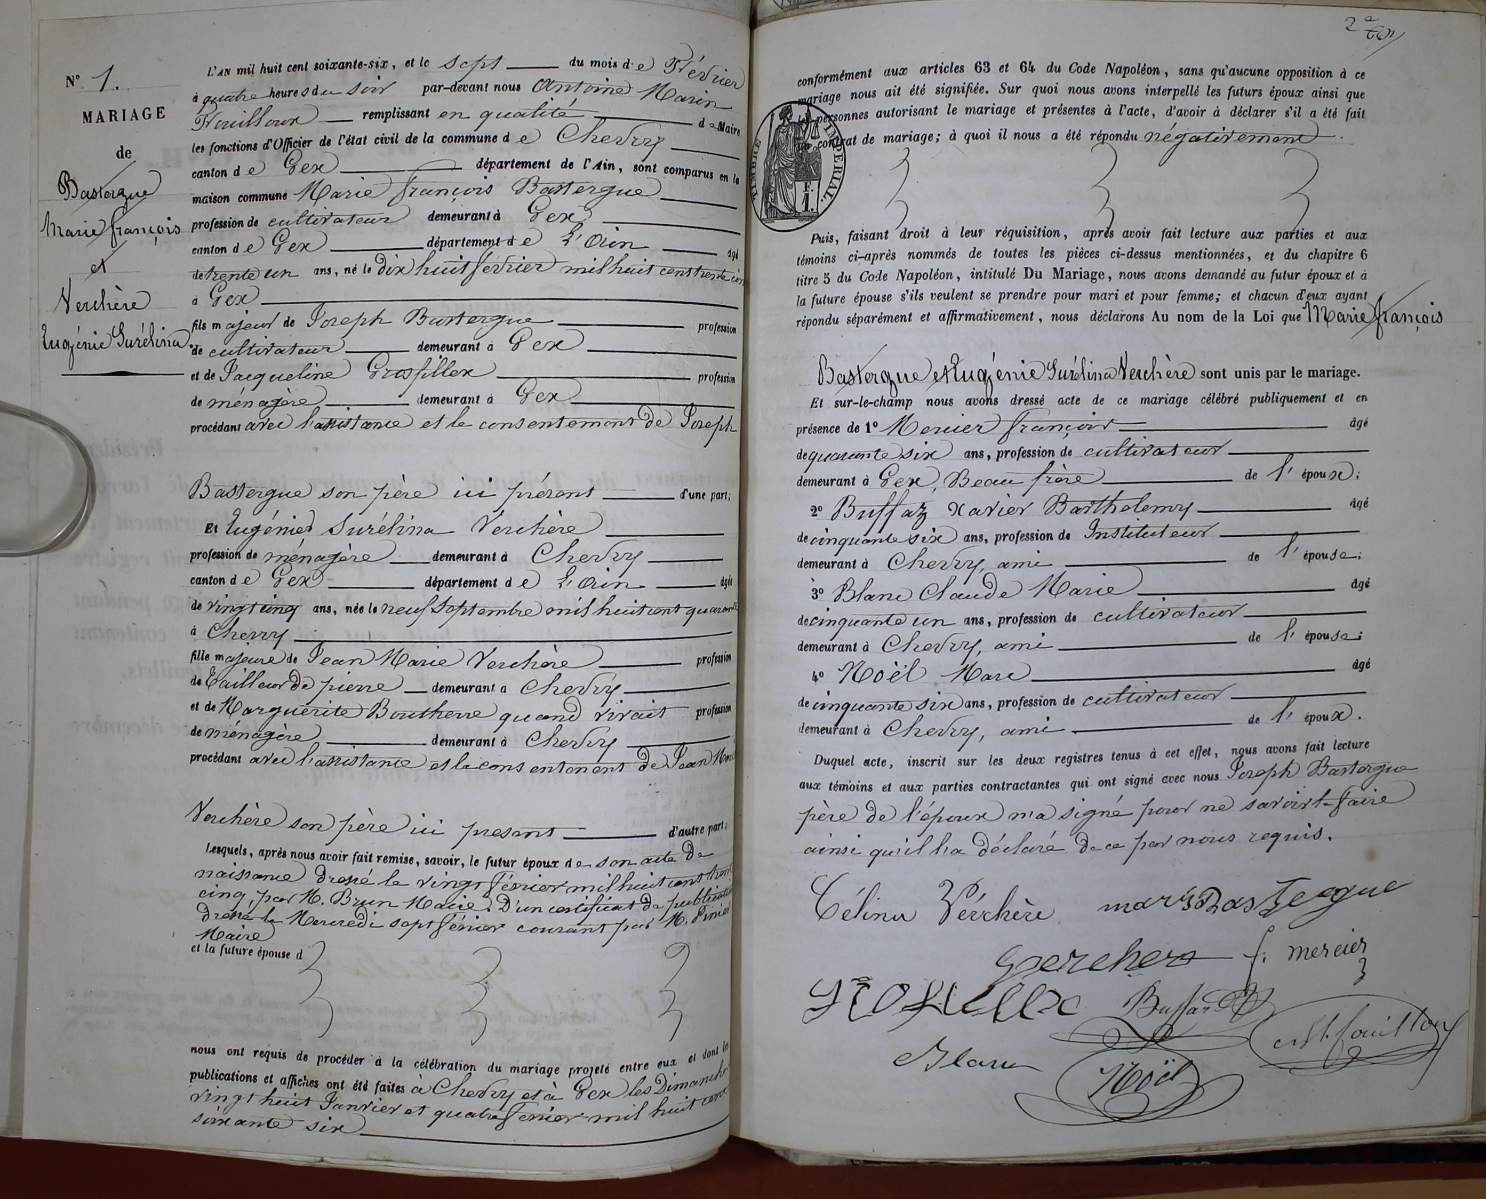 N° 1.
MARIAGE
de
Bastergue
Marie françois
et
Verchère
Eugénie Surélina.
L'AN mil huit cent soixante-six, et le sept du mois de Février
à quatre heures du soir par-devant nous Antoine Marin
Fouilloux remplissant en qualité de Maire
les fonctions d'Officier de l'état civil de la commune de Chevry
canton de Gex département de l'Ain, sont comparus en la
maison commune Marie françois Bastergue
profession de cultivateur demeurant à Gex
canton de Gex département de L'Ain âgé
de trente un ans, né le dix huit février mil huit cent trente cinq
à Gex
fils majeur de Joseph Bastergue profession
de cultivateur demeurant à Gex
et de Jacqueline Grosfillex profession
de ménagère demeurant à Gex
procédant avec l'assistance et le consentement de Joseph
Bastergue son père ici présent d'une part;
Et Eugénie Surélina Verchère
profession de ménagère demeurant à Chevry
canton de Gex département de L'Ain âgée
de vingt cinq ans, née le neuf Septembre mil huit cent quarante
à Chevry
fille majeure de Jean Marie Verchère profession
de tailleur de pierre demeurant à Chevry
et de Marguérite Boutherre quand vivait profession
de ménagère demeurant à Chevry
procédant avec l'assistance et le consentement de Jean Marie
Verchère son père ici présent d'autre part;
Lesquels, après nous avoir fait remise, savoir, le futur époux de son acte de
naissance dressé le vingt février mil huit cent trente
cinq, par M. Brun Maire, D'un certificat de publication
dressé le Mercredi sept février courant par M.
Maire
et la future épouse d
nous ont requis de procéder à la célébration du mariage projeté entre eux et dont les
publications et affiches ont été faites à Chevry et à Gex les Dimanche
vingt huit Janvier et quatre février mil huit cent
soixante six
2e
conformément aux articles 63 et 64 du Code Napoléon, sans qu'aucune opposition à ce
mariage nous ait été signifiée. Sur quoi nous avons interpellé les futurs époux ainsi que
personnes autorisant le mariage et présentes à l'acte, d'avoir à déclarer s'il a été fait
contrat de mariage; à quoi il nous a été répondu négativement
TIMBRE IMPÉRIAL
F.
1.
Puis, faisant droit à leur réquisition, après avoir fait lecture aux parties et aux
témoins ci-après nommés de toutes les pièces ci-dessus mentionnées, et du chapitre 6
titre 5 du Code Napoléon, intitulé Du Mariage, nous avons demandé au futur époux et à
la future épouse s'ils veulent se prendre pour mari et pour femme; et chacun d'eux ayant
répondu séparément et affirmativement, nous déclarons Au nom de la Loi que Marie françois
Bastergue et Eugénie Surélina Verchère sont unis par le mariage.
Et sur-le-champ nous avons dressé acte de ce mariage célébré publiquement et en
présence de 1° Mercier françois âgé
de quarante six ans, profession de cultivateur
demeurant à Gex, Beau frère de l'époux;
2° Buffaz Xavier Barthelemy âgé
de cinquante six ans, profession de Instituteur
demeurant à Chevry, ami de l'épouse;
3° Blanc Claude Marie âgé
de cinquante un ans, profession de cultivateur
demeurant à Chevry, ami de l'épouse;
4° Noël Marc âgé
de cinquante six ans, profession de cultivateur
demeurant à Chevry, ami de l'époux.
Duquel acte, inscrit sur les deux registres tenus à cet effet, nous avons fait lecture
aux témoins et aux parties contractantes qui ont signé avec nous Joseph Bastergue
père de l'époux n'a signé pour ne savoir le faire
ainsi qu'il l'a déclaré de ce par nous requis.
Célina Vérchère mari Bastergue
Verchere f. mercier
Buffaz
Blanc Noël A M. fouilloux